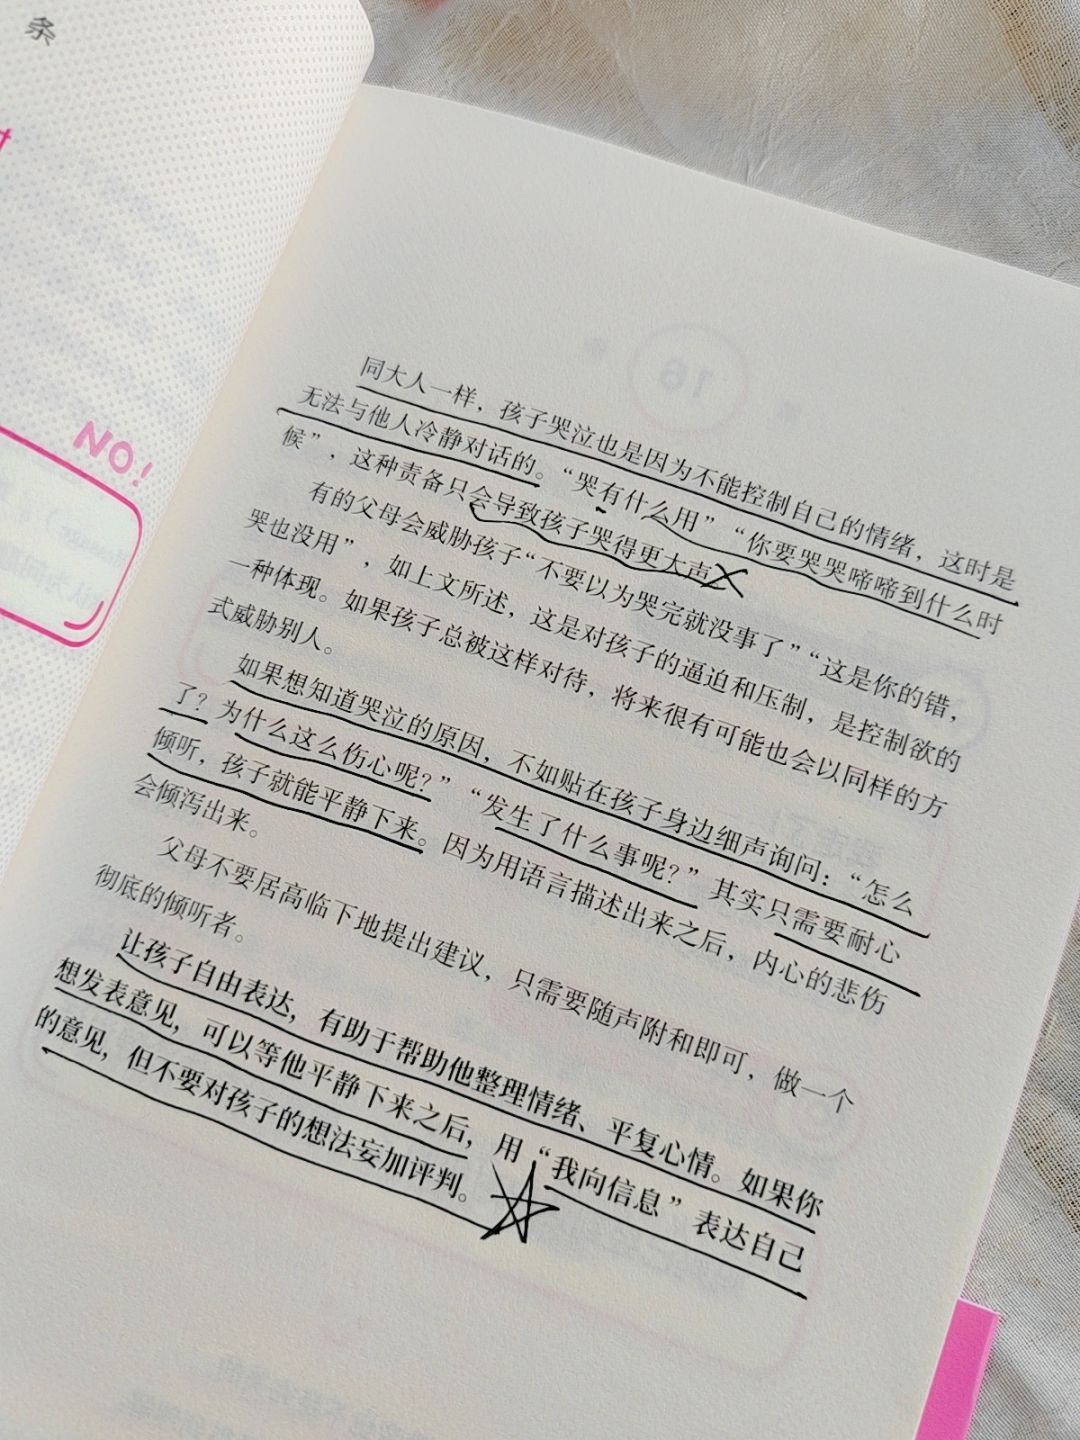 条
NO!
同大人一样，孩子哭泣也是因为不能控制自己的情绪，这时是
无法与他人冷静对话的。“哭有什么用”“你要哭哭啼啼到什么时
候”，这种责备只会导致孩子哭得更大声。
有的父母会威胁孩子“不要以为哭完就没事了”“这是你的错，
哭也没用”，如上文所述，这是对孩子的逼迫和压制，是控制欲的
一种体现。如果孩子总被这样对待，将来很有可能也会以同样的方
式威胁别人。
如果想知道哭泣的原因，不如贴在孩子身边细声询问：“怎么
了？为什么这么伤心呢？”“发生了什么事呢？”其实只需要耐心
倾听，孩子就能平静下来。因为用语言描述出来之后，内心的悲伤
会倾泻出来。
父母不要居高临下地提出建议，只需要随声附和即可，做一个
彻底的倾听者。
让孩子自由表达，有助于帮助他整理情绪、平复心情。如果你
想发表意见，可以等他平静下来之后，用“我向信息”表达自己
的意见，但不要对孩子的想法妄加评判。